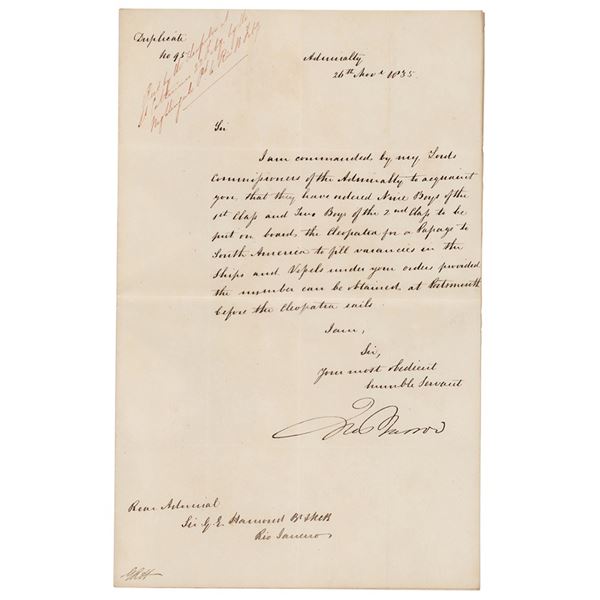 Duplicate
No 95
Admiralty
26th Novr 1835.
Sir
I am commanded by my Lords
Commissioners of the Admiralty to acquaint
you, that they have ordered Nine Boys of the
1st Class and Two Boys of the 2nd Class to be
put on board, the Cleopatra for a Passage to
South America to fill vacancies in the
Ships and Vessels under your orders provided
the number can be obtained at Portsmouth
before the Cleopatra sails.
I am,
Sir,
Your most obedient
humble Servant
Jno Barrow
Rear Admiral
Sir G. E. Hamond Bt KCB
Rio Janeiro